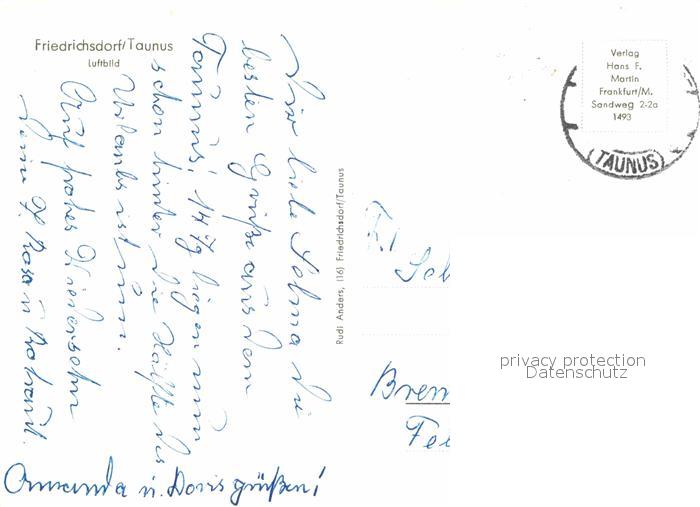 Friedrichsdorf/Taunus
Luftbild
Dir liebe Selma die
besten Grüße aus dem
Taunus; 14 Tg liegen nun
schon hinter die Hälfte des
Urlaubs ist um.
Auf frohes Wiedersehn
Deine Rosa u.
Amanda u. Doris grüßen!
Rudi Anders, (16) Friedrichsdorf/Taunus
Verlag
Hans F.
Martin
Frankfurt/M.
Sandweg 2-2a
1493
(TAUNUS)
Frl
Sel
Brem
privacy protection
Datenschutz